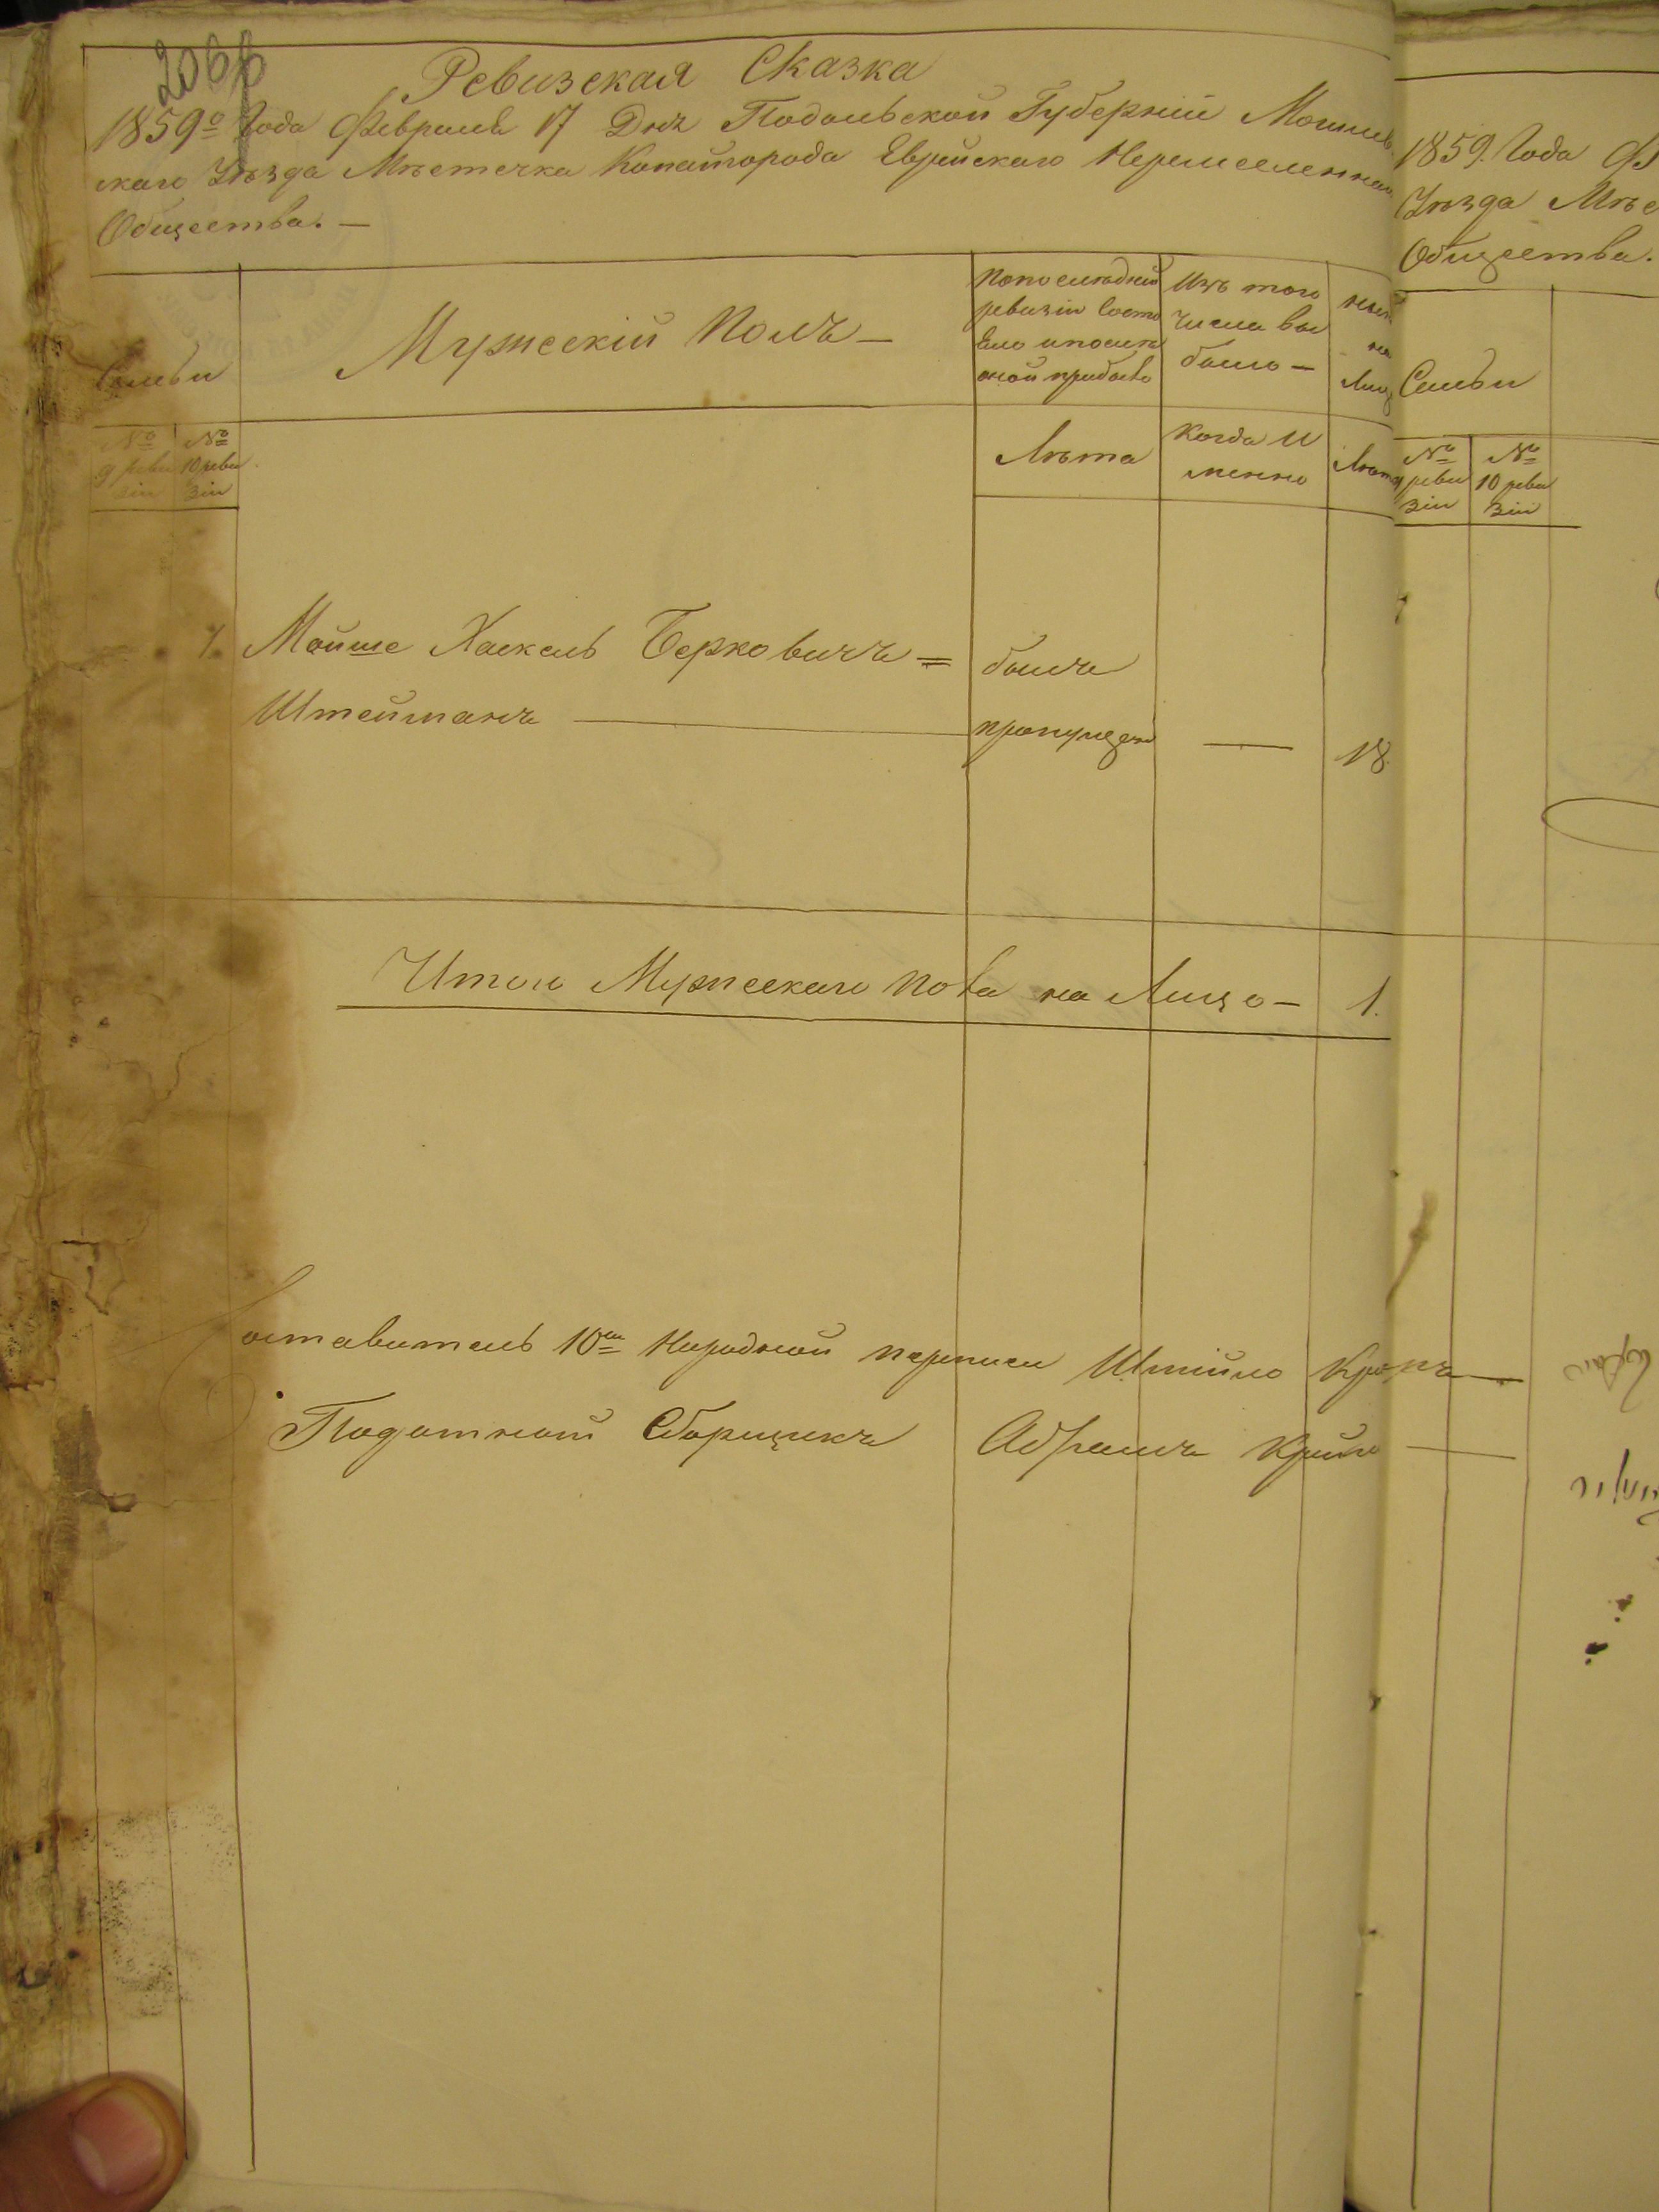 2066
Ревизская Сказка
1859º Года Февраля 17 Дня Подольской Губерніи Могилев
скаго Уѣзда Мѣстечка Копайгорода Еврейскаго
Общества. —
Семьи
Мужескій Полъ —
Попослѣдней
ревизіи Состо
яло ипослѣ
оной прибыло
Изъ того
числа вы
было —
нынѣ
на
Лицо
№ 9 реви зіи
№ 10 реви зіи
Лѣта
Когда И
менно
Лѣта
1. Мойше Хаскель Берковичъ =
Штейманъ —
былъ
пропущенъ
— 18.
Итого Мужескаго Пола на Лицо — 1.
Составитель 10й Народной переписи
Податной Сборщикъ Абрамъ
1859. Года Ф
Уѣзда Мѣс
Общества.
Семьи
№ 9 реви зіи
№ 10 реви зіи